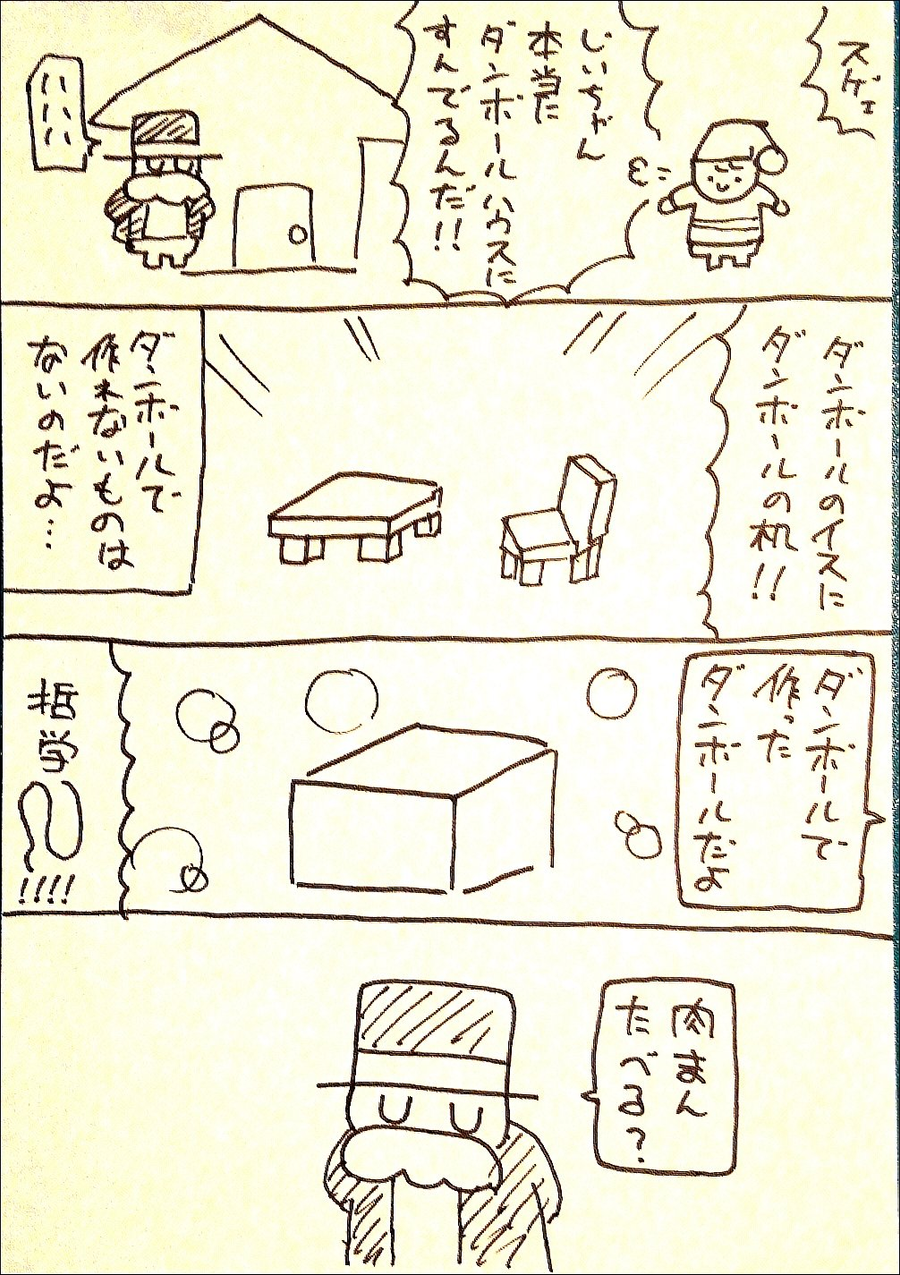 スゲェ
じいちゃん
本当に
ダンボールハウスに
すんでるんだ!!
いいい
ダンボールのイスに
ダンボールの机!!
ダンボールで
作れないものは
ないのだよ…
ダンボールで
作った
ダンボールだよ
哲学〜!!!!
肉まん
たべる?